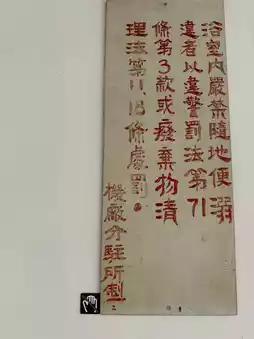 浴室內嚴禁隨地便溺
違者以違警罰法第71
條第3款或廢棄物清
理法第11、18條處罰
機廠分駐所製